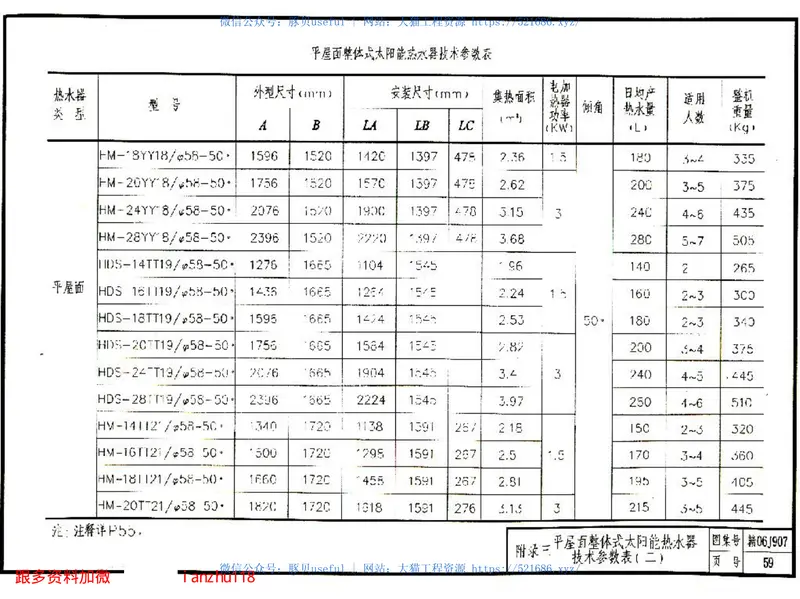 微信公众号：豚贝useful | 网站：大猫工程资源 https://521686.xyz/
平屋面整体式太阳能热水器技术参数表
热水器类型 型号 外型尺寸(mm) 安装尺寸(mm) 集热面积(m²) 电加热器功率(KW) 倾角 日均产热水量(L) 适用人数 整机重量(Kg)
A B LA LB LC
HM-18YY18/φ58-50° 1596 1520 1420 1397 478 2.36 1.5 180 3~4 335
HM-20YY18/φ58-50° 1756 1520 1570 1397 478 2.62 200 3~5 375
HM-24YY18/φ58-50° 2076 1520 1900 1397 478 3.15 3 240 4~6 435
HM-28YY18/φ58-50° 2396 1520 2220 1397 478 3.68 280 5~7 505
HDS-14TT19/φ58-50° 1276 1665 1104 1545 1.96 140 2 265
平屋面 HDS-16TT19/φ58-50° 1436 1665 1264 1545 2.24 1.5 160 2~3 300
HDS-18TT19/φ58-50° 1596 1665 1424 1545 2.53 50° 180 2~3 340
HDS-20TT19/φ58-50° 1756 1665 1584 1545 2.82 200 3~4 375
HDS-24TT19/φ58-50° 2076 1665 1904 1545 3.4 3 240 4~5 445
HDS-28TT19/φ58-50° 2396 1665 2224 1545 3.97 280 4~6 510
HM-14TT21/φ58-50° 1340 1720 1138 1591 267 2.18 150 2~3 320
HM-16TT21/φ58-50° 1500 1720 1298 1591 267 2.5 1.5 170 3~4 360
HM-18TT21/φ58-50° 1660 1720 1458 1591 267 2.81 195 3~5 405
HM-20TT21/φ58-50° 1820 1720 1618 1591 276 3.13 3 215 3~5 445
注：注释详P55。
附录三 平屋面整体式太阳能热水器技术参数表(二) 图集号 赣06J907
页号 59
微信公众号：豚贝useful | 网站：大猫工程资源 https://521686.xyz/
跟多资料加微 Tanzhu118